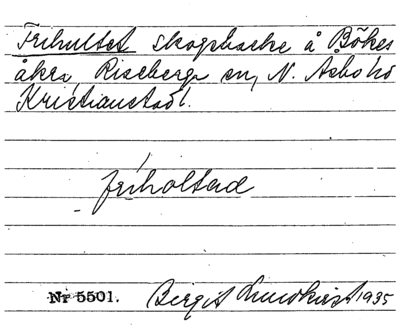 Frihultet skogsbacke å Bökes
åkra, Riseberga sn, N. Åsbo hd
Kristianstad l.
friholtad
Nr 5501. Birgit Lundkvist 1935